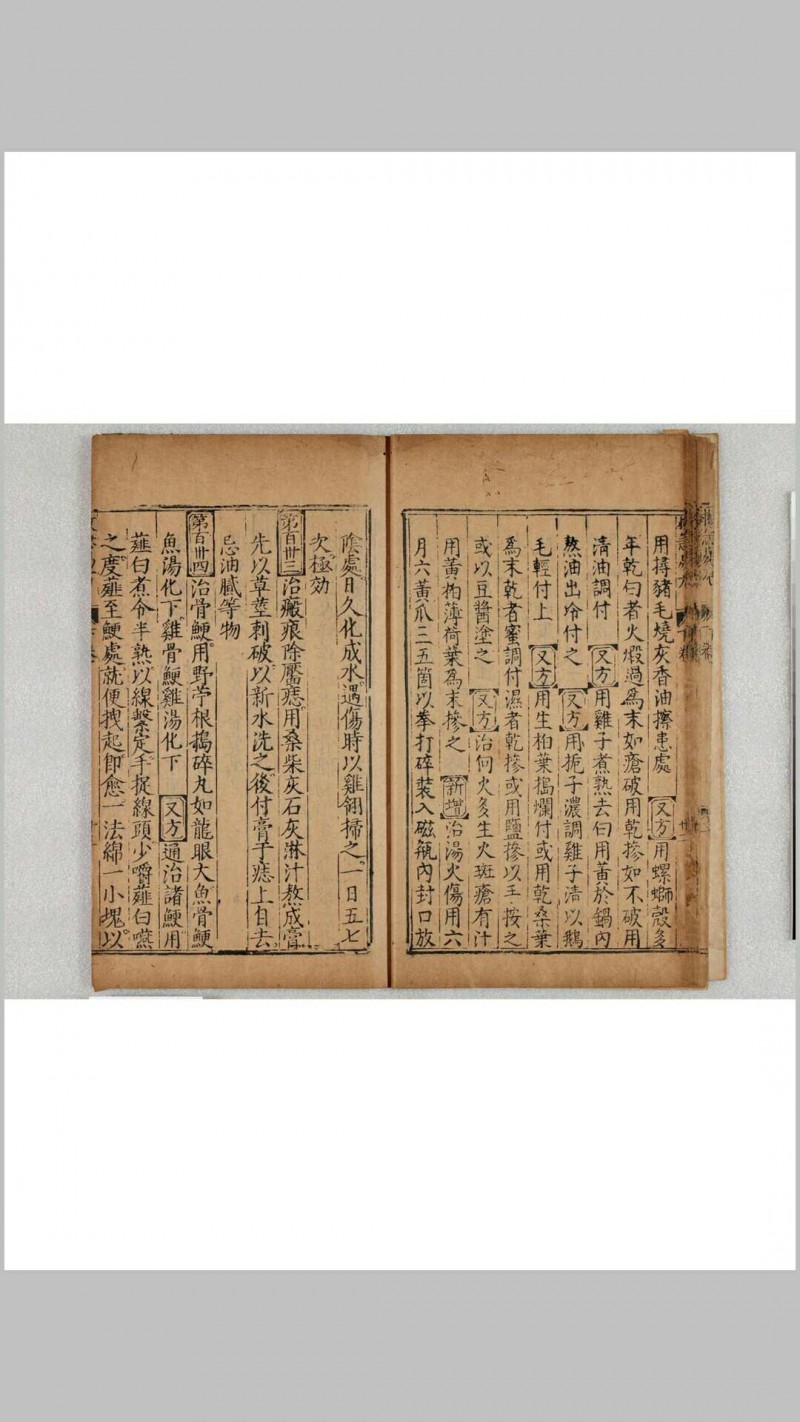 用撏豬毛燒灰香油擦患處 又方 用螺螄殼多
年乾白者火煅過爲末如瘡破用乾摻如不破用
清油調付 又方 用雞子煮熟去白用黃於鍋內
熬油出冷付之 又方 用梔子濃調雞子清以鵝
毛輕付上 又方 用生柏葉搗爛付或用乾桑葉
爲末乾者蜜調付濕者乾摻或用鹽摻以手按之
或以豆醬塗之 又方 治向火多生火斑瘡有汁
用黃栢薄荷葉爲末摻之 新增 治湯火傷用六
月六黃瓜三五箇以拳打碎裝入磁瓶內封口放
陰處日久化成水遇傷時以雞翎掃之一日五七
次極効
第百卅三 治瘢痕除靨痣用桑柴灰石灰淋汁熬成膏
先以草莖刺破以新水洗之後付膏子痣上自去
忌油膩等物
第百卅四 治骨鯁用野苧根搗碎丸如龍眼大魚骨鯁
魚湯化下雞骨鯁雞湯化下 又方 通治諸鯁用
薤白煮令半熟以線繫定手捉線頭少嚼薤白嚥
之度薤至鯁處就便拽起即愈一法綿一小塊以